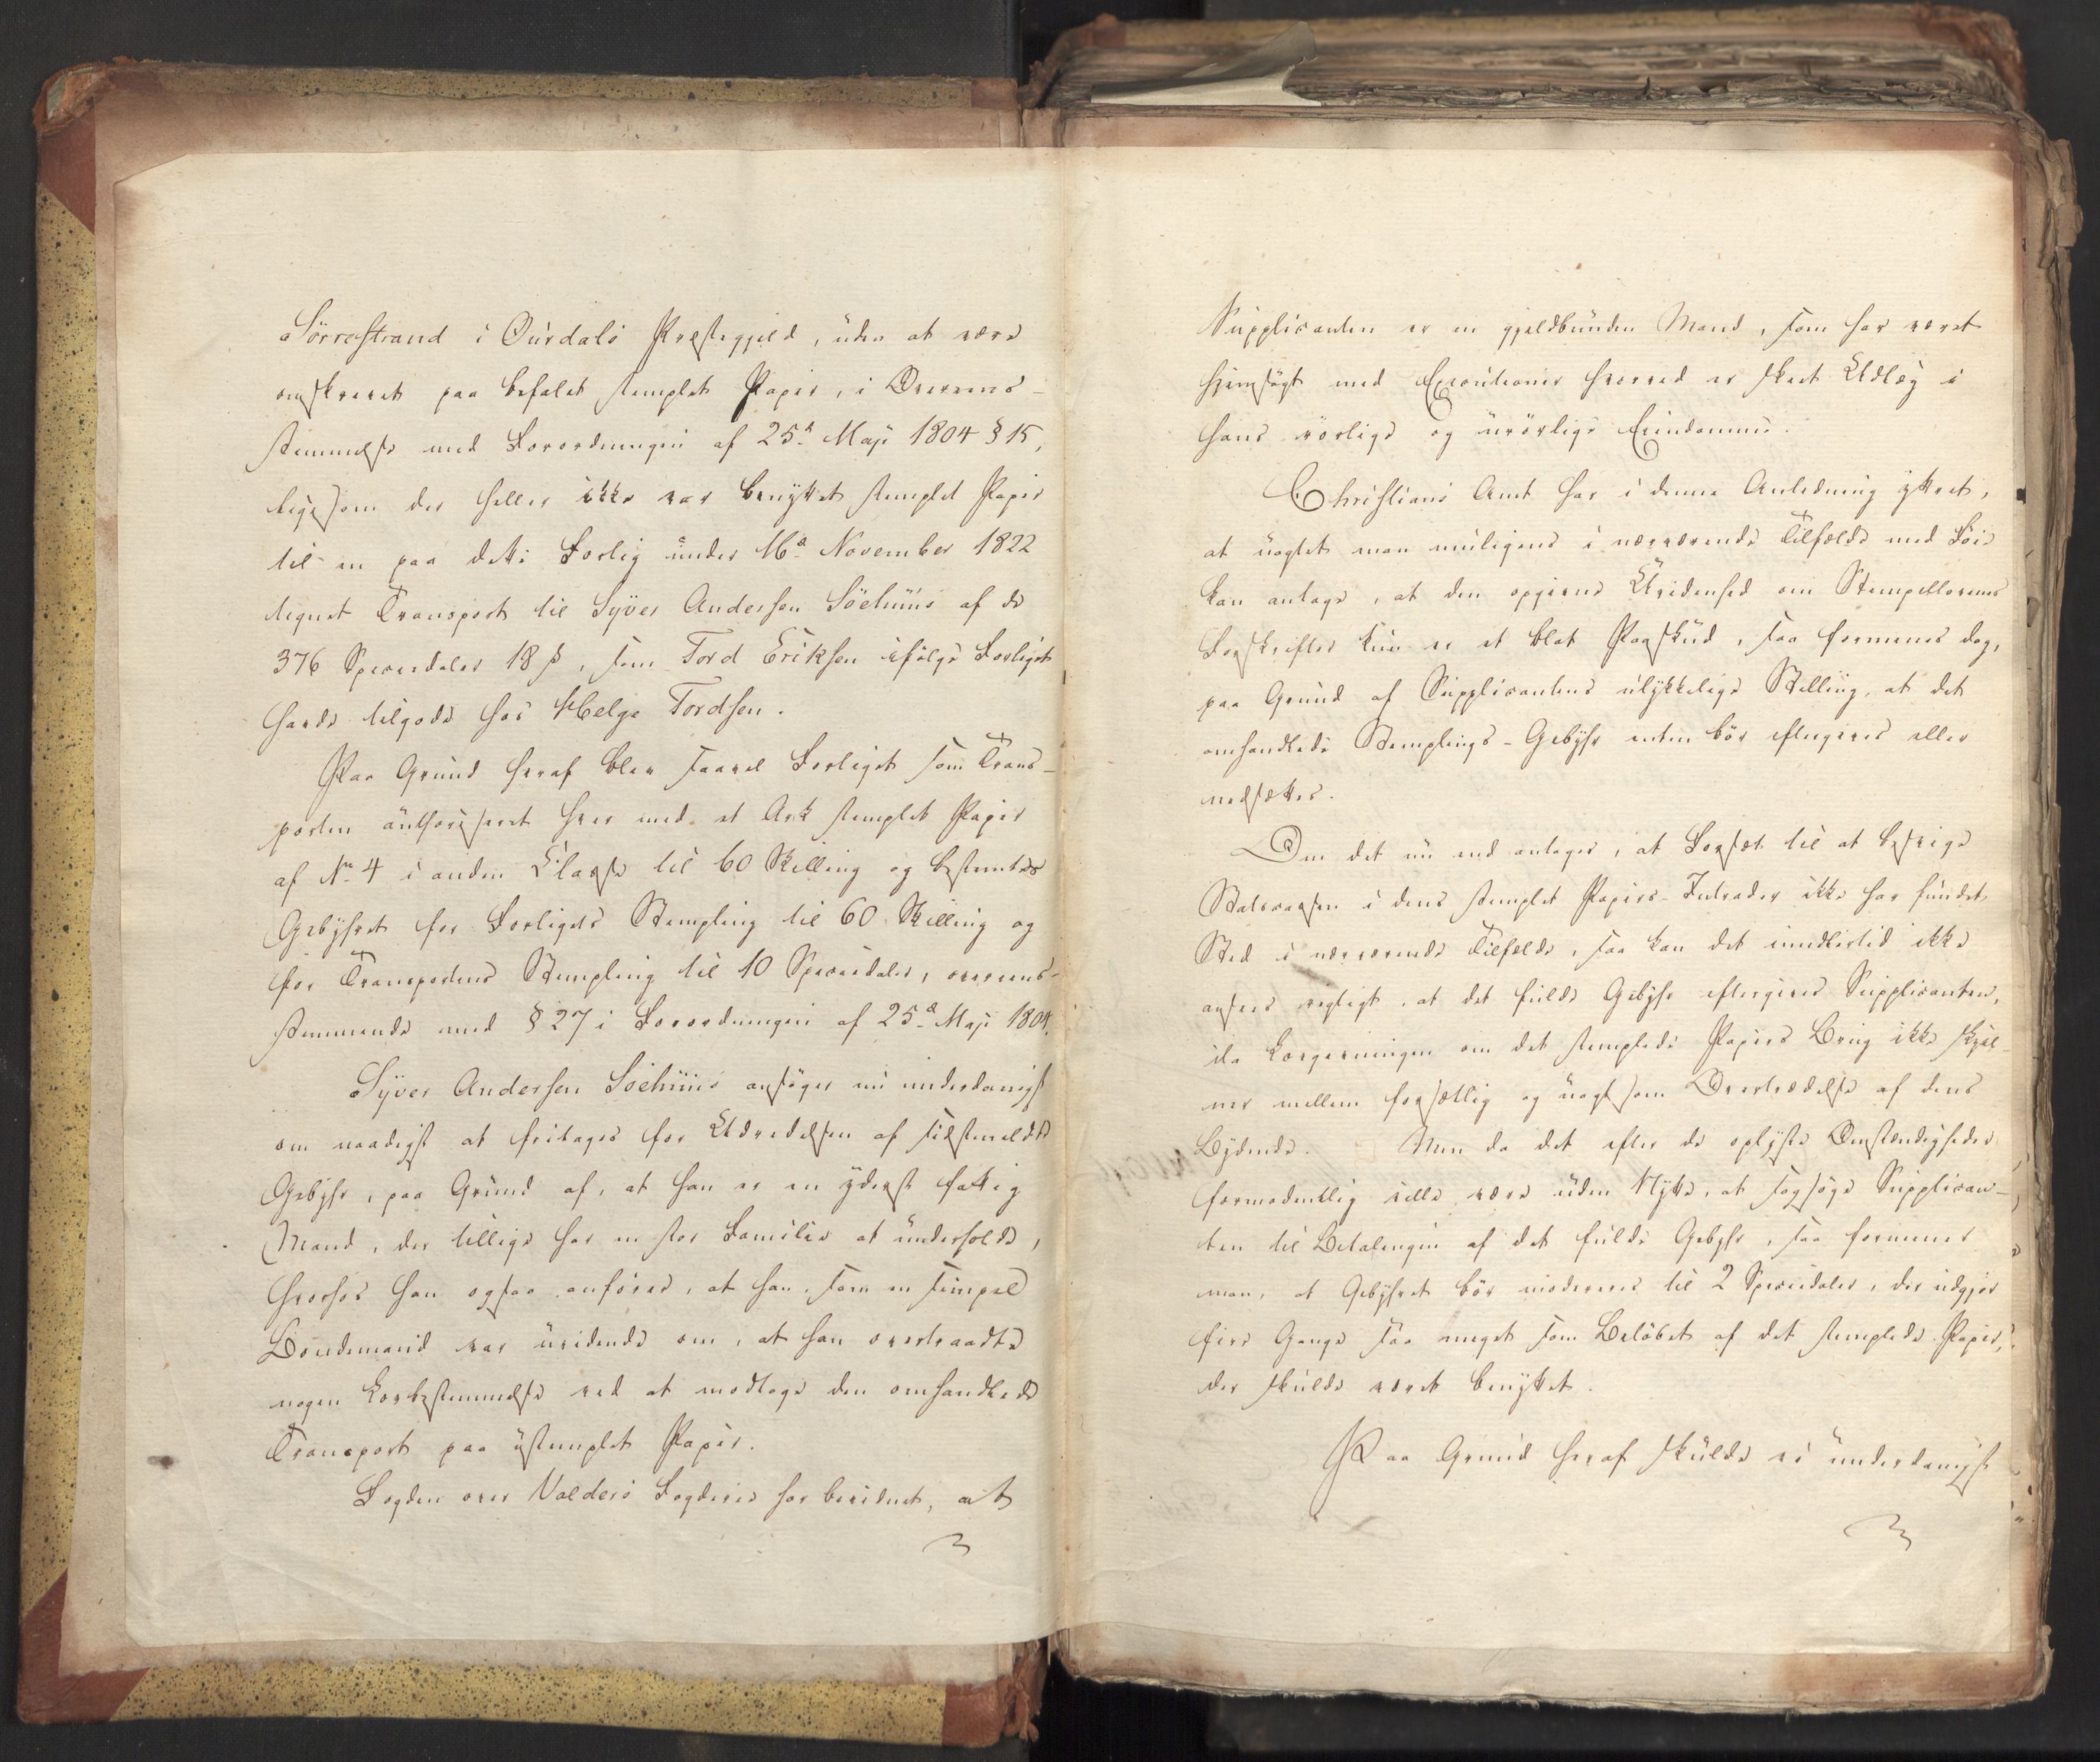 Sörrestrand i Ourdals Præstegjeld, uden at være
omskrevet paa befalet stemplet Papir, i Overeens-
stemmelse med Forordningen af 25d Maji 1804 § 15,
ligesom der heller ikke var benyttet stemplet Papir
til en paa dette Forlig under 16d November 1822
tegnet Transport til Syver Andersen Söehuus af de
376 Speciedaler 18 ß, som Tord Eriksen ifölge Forliget
havde tilgode hos Helge Tordsen.
Paa Grund heraf blev saavel Forliget som Trans-
porten authoriseret hver med et Ark stemplet Papir
af No 4 i anden Classe til 60 Skilling og bestemtes
Gebyhret for Forligets Stempling til 60 Skilling og
for Transportens Stempling til 10 Speciedaler, overeens-
stemmende med § 27 i Forordningen af 25d Maji 1804.
Syver Andersen Söehuus ansöger nu underdanigst
om naadigst at fritages for Udredelsen af sidstmeldte
Gebyhr, paa Grund af, at han er en yderst fattig
Mand, der tillige har en stor Familie at underholde,
hvorhos han ogsaa anförer, at han som en simpel
Bondemand var uvidende om, at han overtraadte
nogen Lovbestemmelse ved at modtage den omhandlede
Transport paa ustemplet Papir.
Fogden over Valders Fogderie har bevidnet, at
Supplicanten er en gjeldbunden Mand, som har været
hjemsögt med Executioner hvorved er skeet Udlæg i
hans rörlige og urörlige Eiendomme.
Christians Amt har i denne Anledning yttret,
at uagtet man muligens i nærværende Tilfælde med Föie
kan antage, at den opgivne Uvidenhed om Stempellovens
Forskrifter kun er et blot Paaskud, saa formenes dog,
paa Grund af Supplicantens ulykkelige Stilling, at det
omhandlede Stemplings-Gebyhr enten bör eftergives eller
nedsættes.
Om det nu end antages, at Forsæt til at besvige
Statscassen i dens stemplet Papiirs-Intrader ikke har fundet
Sted i nærværende Tilfælde, saa kan det imidlertid ikke
ansees rigtigt, at det fulde Gebyhr eftergives Supplicanten,
da Lovgivningen om det stemplede Papirs Brug ikke skjel-
ner mellem forsætlig og uagtsom Overtrædelse af dens
Bydende. Men da det efter de oplyste Omstændigheder
formodentlig ville være uden Nytte, at sagsöge Supplican-
ten til Betalingen af det fulde Gebyhr, saa formener
man, at Gebyhret bör modereres til 2 Speciedaler, der udgjör
fire Gange saa meget som Belöbet af det stemplede Papir,
der skulde været benyttet.
Paa Grund heraf skulde vi underdanigst